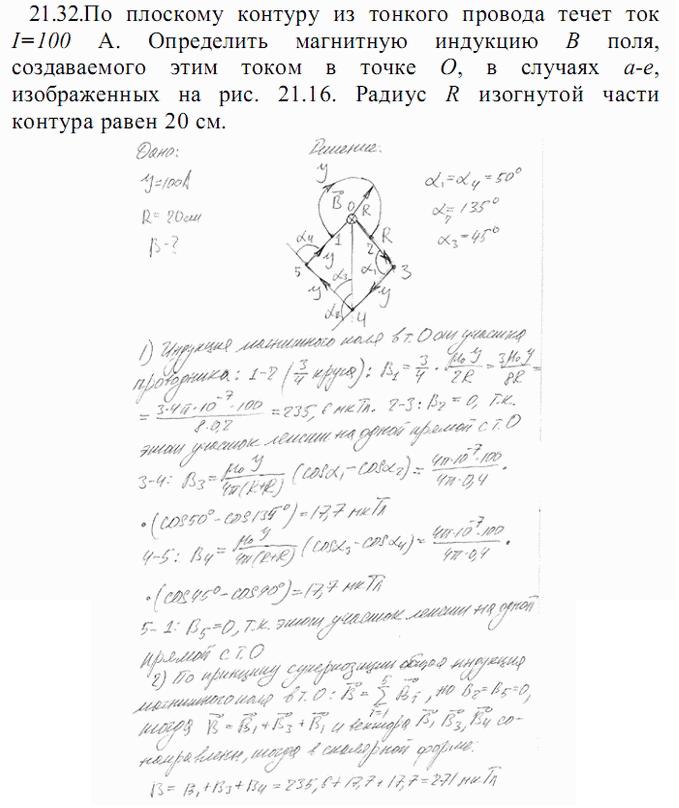 21.32.По плоскому контуру из тонкого провода течет ток
I=100 А. Определить магнитную индукцию B поля,
создаваемого этим током в точке O, в случаях а-е,
изображенных на рис. 21.16. Радиус R изогнутой части
контура равен 20 см.
Дано: Решение:
У=100А
R=20см
B-?
У
B⃗ O R
α₄ 1 2 R
5 У α₃ α₁ 3
У α₂ У
4
α₁=α₄=50°
α₂=135°
α₃=45°
1) Индукция магнитного поля в т.О от участка
проводника: 1-2 (3/4 круга): B₁=3/4·μ₀У/2R=3μ₀У/8R=
=3·4π·10⁻⁷·100/8·0,2=235,6 мкТл. 2-3: B₂=0, т.к.
этот участок лежит на одной прямой с т.О
3-4: B₃=μ₀У/4π(R+R) (cosα₁-cosα₂)=4π·10⁻⁷·100/4π·0,4·
·(cos50°-cos135°)=17,7 мкТл
4-5: B₄=μ₀У/4π(R+R) (cosα₃-cosα₄)=4π·10⁻⁷·100/4π·0,4·
·(cos45°-cos90°)=17,7 мкТл
5-1: B₅=0, т.к. этот участок лежит на одной
прямой с т.О
2) По принципу суперпозиции общая индукция
магнитного поля в т.О: B⃗=∑⁵ᵢ₌₁B⃗ᵢ, но B₂=B₅=0,
тогда B⃗=B⃗₁+B⃗₃+B⃗₁ и вектора B⃗₁ B⃗₃ B⃗₄ со-
направлены, тогда в скалярной форме:
B=B₁+B₃+B₄=235,6+17,7+17,7=271 мкТл